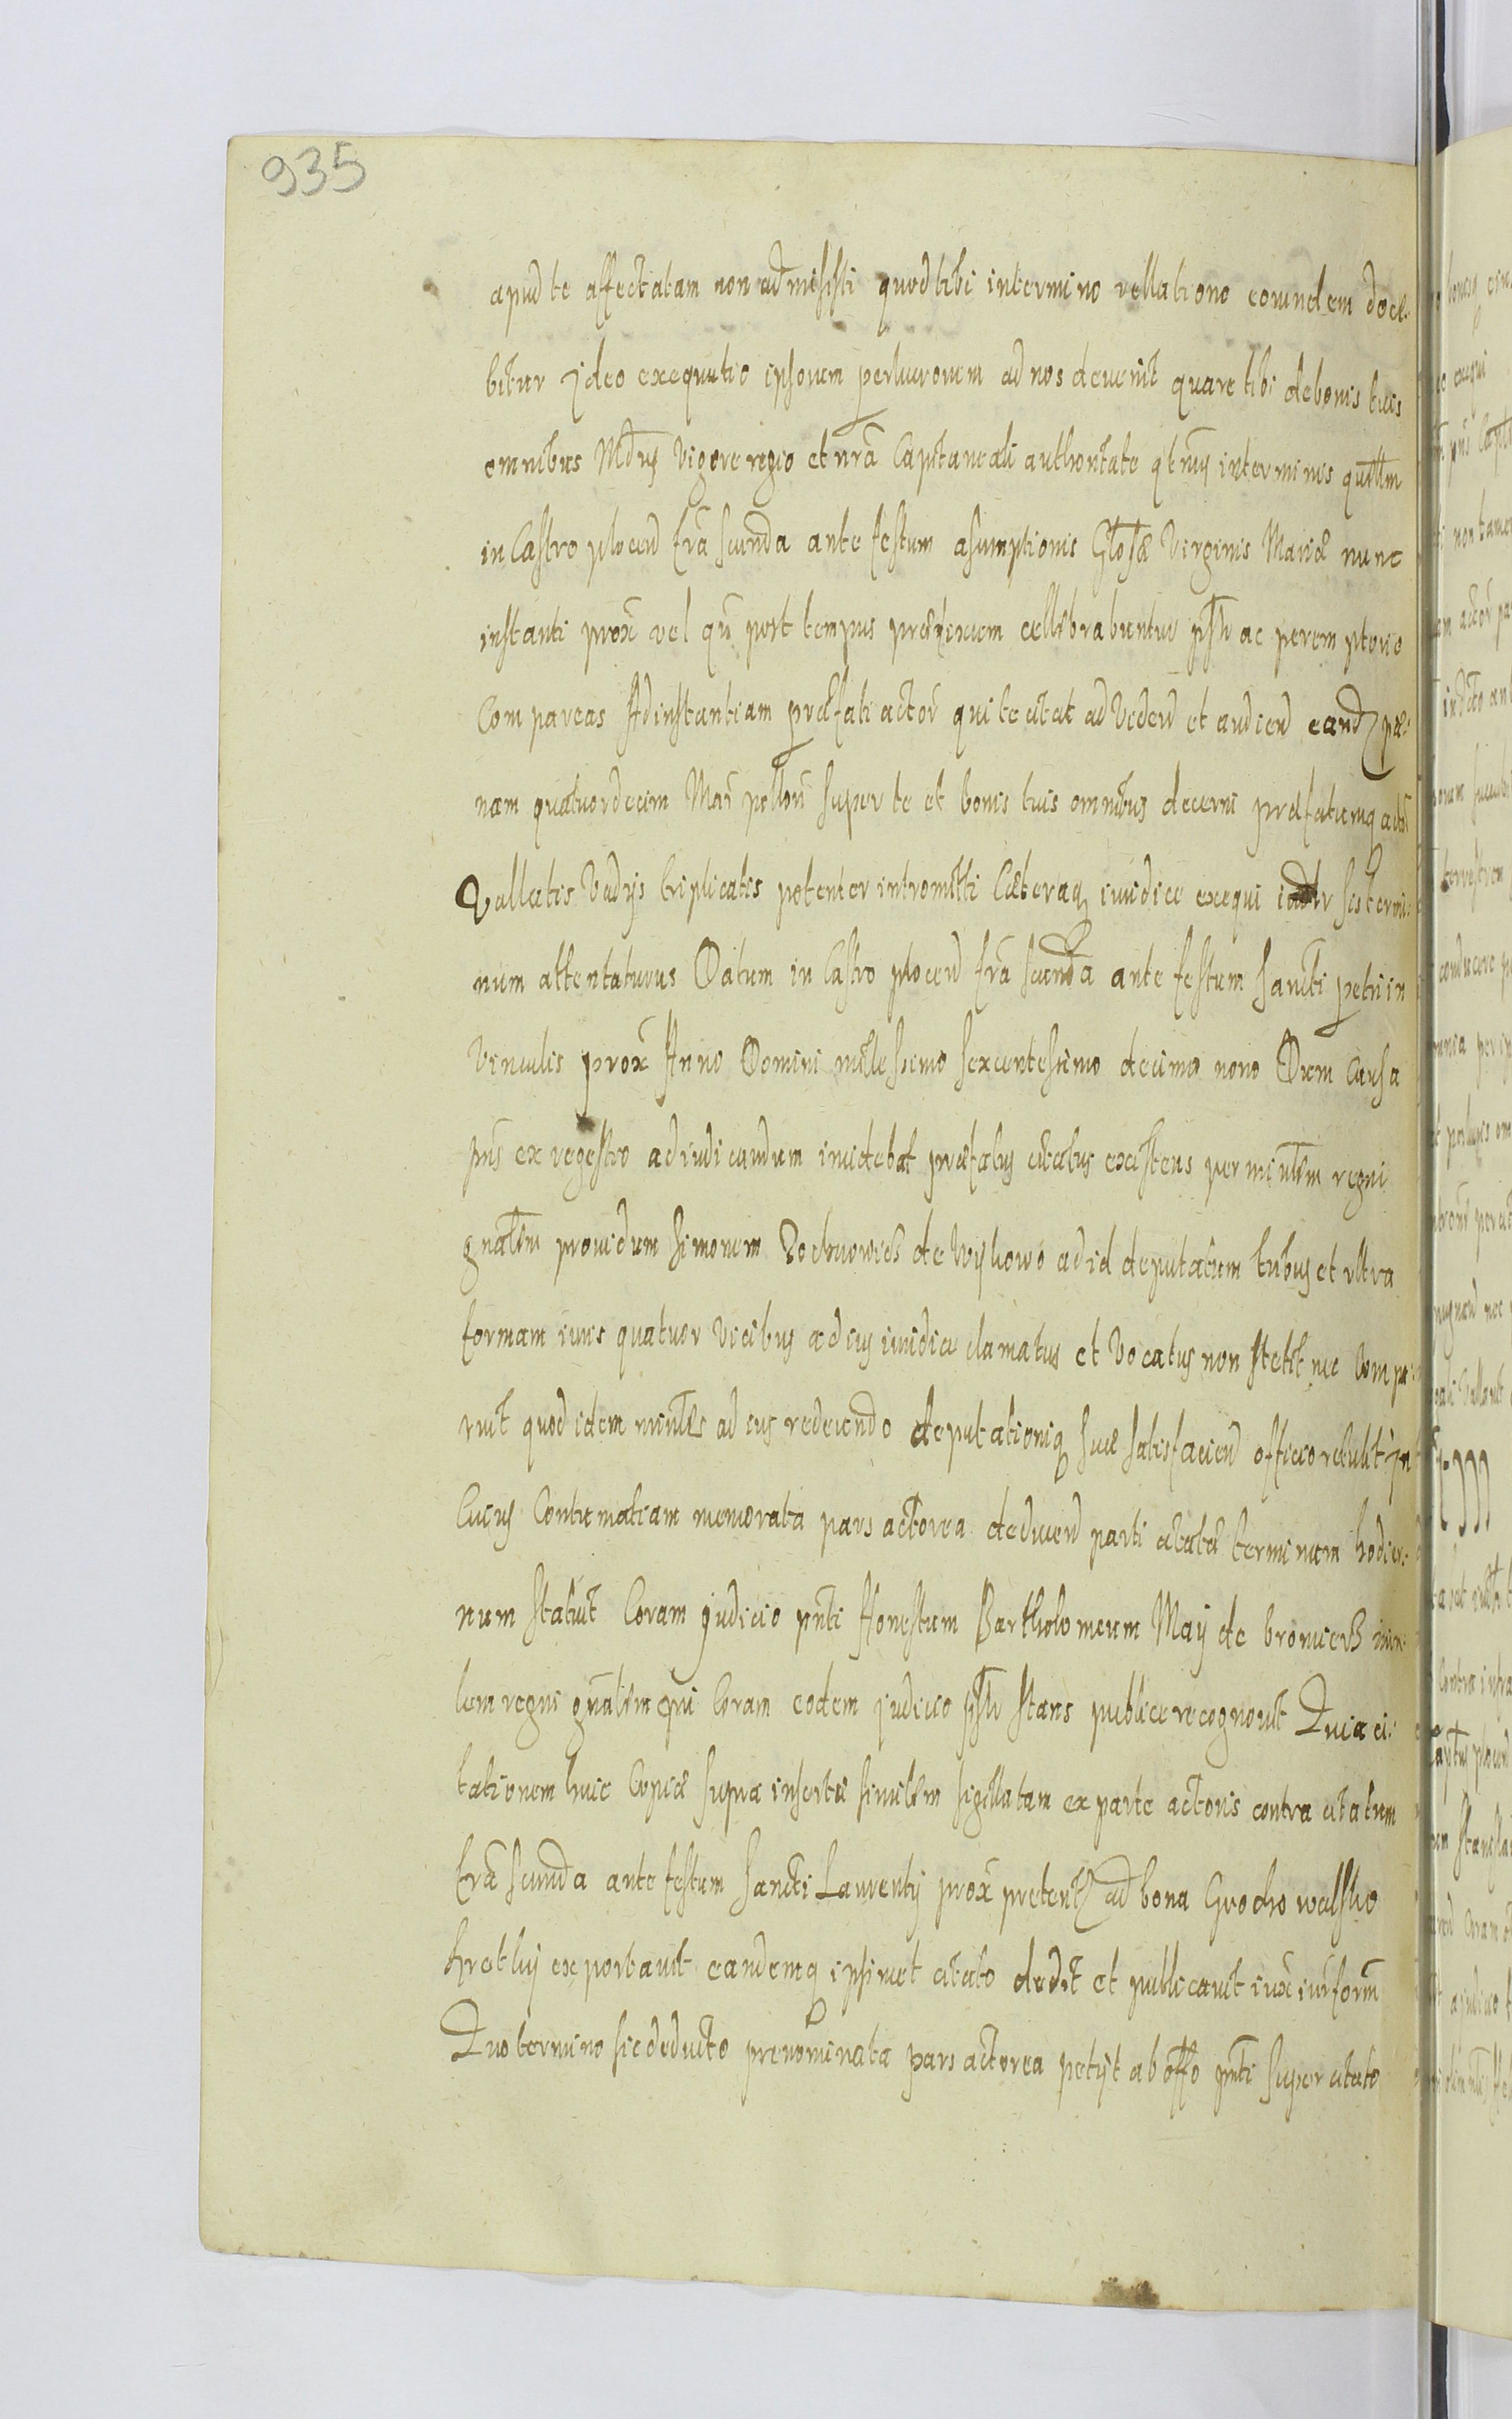 935
apud te affectatam non admisisti quod tibi in termino rellatione eorundem doce-
bitur Ideo exequutio ipsorum perlucrorum ad nos devenit quare tibi de bonis tuis
omnibus Mdus Vigore regio et nrã Capitaneali authoritate qtnus in terminis qullm
in Castro plocen fra scunda ante festum asumptionis Glosæ Virginis Mariæ nunc
instanti prox vel qu post tempus præfixum cellebrabuntur pslr ac peremptorie
Compareas Ad instantiam præfati actor qui te citat ad Vidend et audiend eand pæ-
nam quatuordecim Mar pollon super te et bonis tuis omnibus decerni præfatumq actor
Vallatis Vadijs triplicatis potenter intromitti Cæteraq iuridice exequi iadtr sis termi-
num attentaturus Datum in Castro plocen fra scunda ante festum Sancti petri in
Vinculis prox Anno Domini millesimo sexcentesimo decimo nono Dum Causa
pns ex regestro adiudicandum incidebat præfatus citatus existens per mintlm regni
gnalem providum Simonem de Wykowo ad id deputatum tribus et ultra
formam iuris quatuor Vicibus ad ius iuridice clamatus et Vocatus non stetit nec Compa-
ruit quod idem mintlis ad ius redeundo deputationiq suæ satisfaciend officio retulit in
Cuius Contumatiam memorata pars actorea deducend parti citatæ terminum hodier-
num statuit Coram Judicio pnti Honestum Bartholomeum May de bromierz mn-
lem regni gnalem qui Coram eodem Judicio pslr stans publice recognovit Quia ci-
tationem huic Copiæ supra insertæ similem sigillatam ex parte actoris contra citatum
fra scunda ante festum Sancti Laurentij prox preterit ad bona Grochowalsko
kretky exportavit eandemq ipsimet citato dedit et publicavit iux iur form
Quo termino sic deducto prenominata pars actorea petyt ab offo pnti super citato